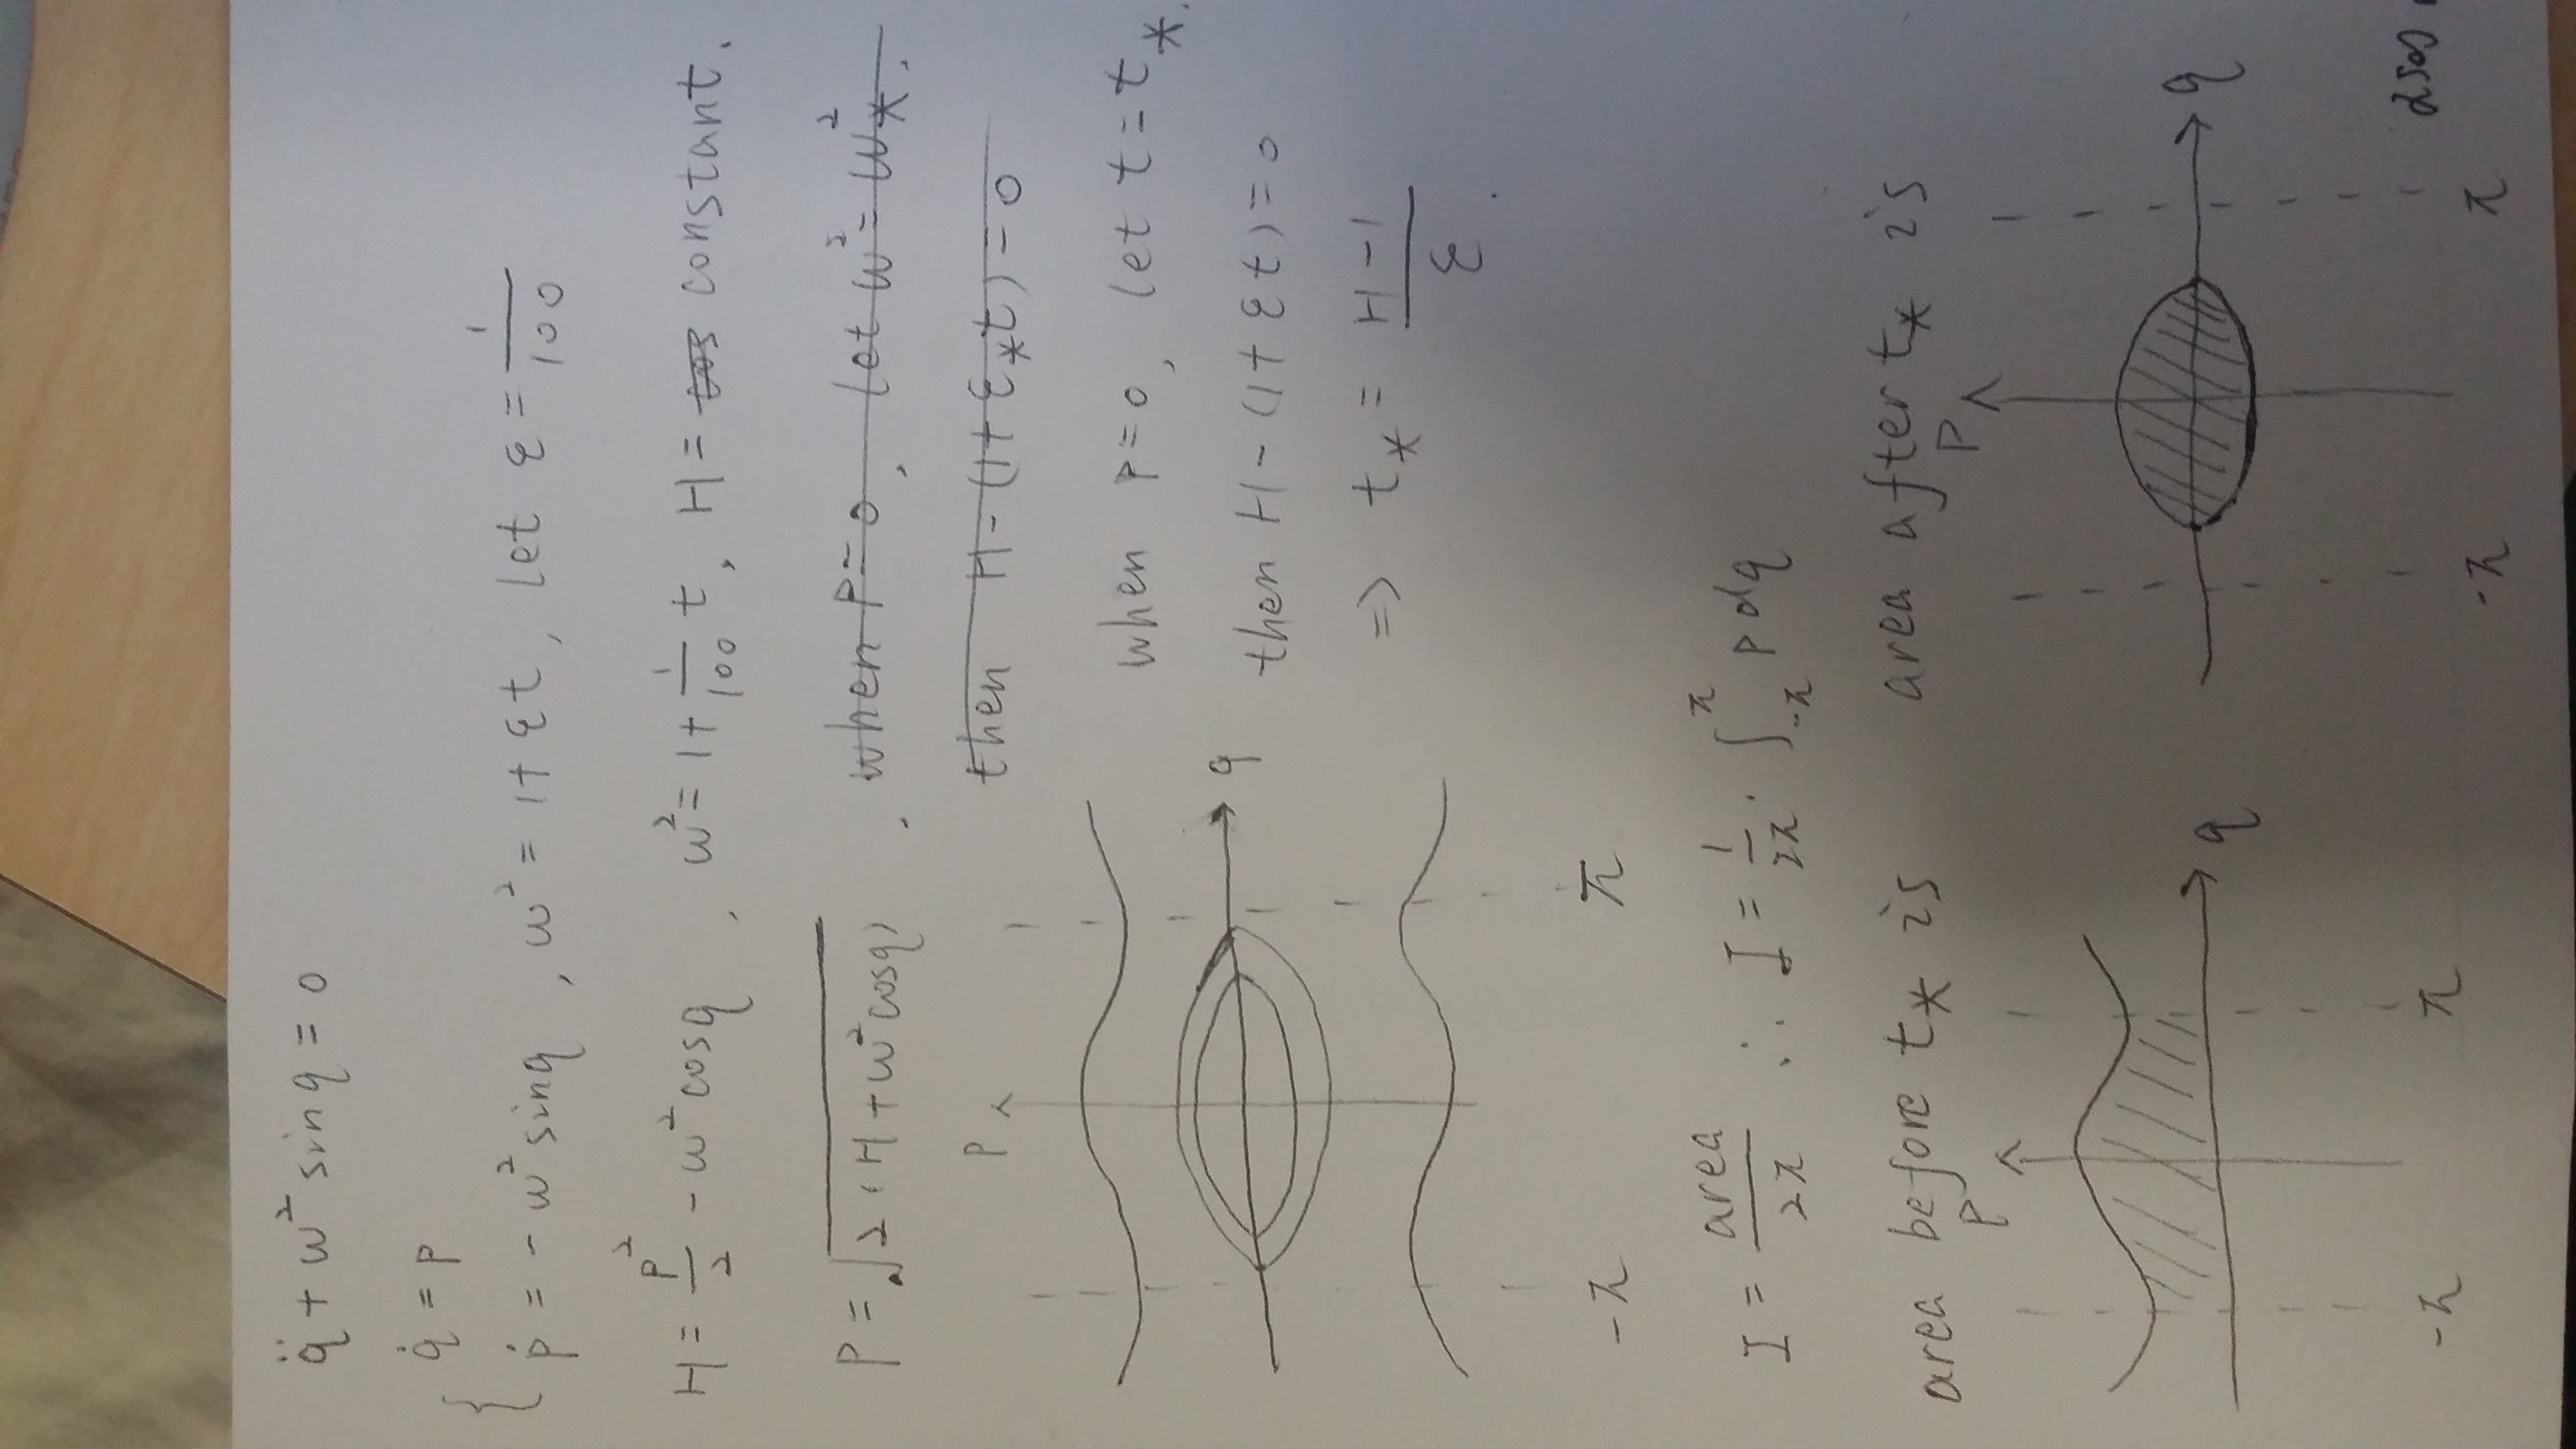 q̈ + ω² sin q = 0
{ q̇ = p
ṗ = - ω² sin q , ω² = 1 + εt , let ε = 1/100
H = p²/2 - ω² cos q , ω² = 1 + 1/100 t , H = cos constant .
P = √2(H + ω² cos q) . when P = 0 , let ω² = ω²* .
then H - (1 + ε*t) = 0
when P = 0 , let t = t* .
then H - (1 + εt) = 0
⇒ t* = H - 1 / ε .
P
q
-π π
I = area/2π ∴ I = 1/2π · ∫_{-π}^{π} P dq
area before t* is area after t* is
P q P q
-π π -π π